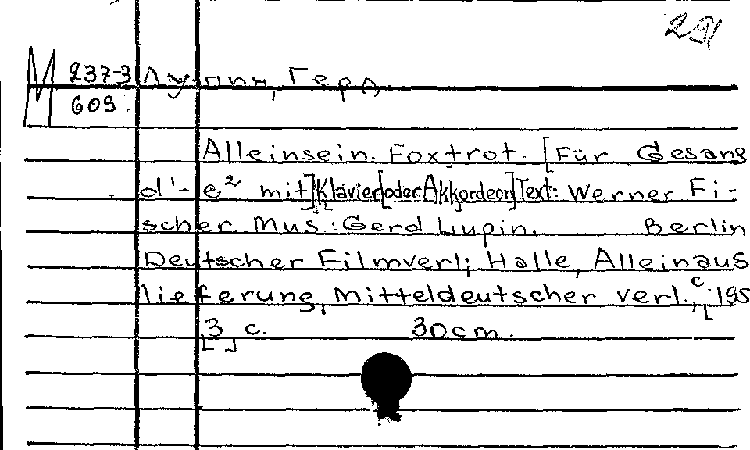 291
М 237-3 Лупин, Герд.
609.
Alleinsein. Foxtrot. [Für Gesang
d'- e² mit] Klavier [oder Akkordeon] Text: Werner Fi-
scher Mus: Gerd Lupin. Berlin
Deutscher Filmverl; Halle, Alleinaus
lieferung, Mitteldeutscher verl., c. 195
[3] c. 30cm.